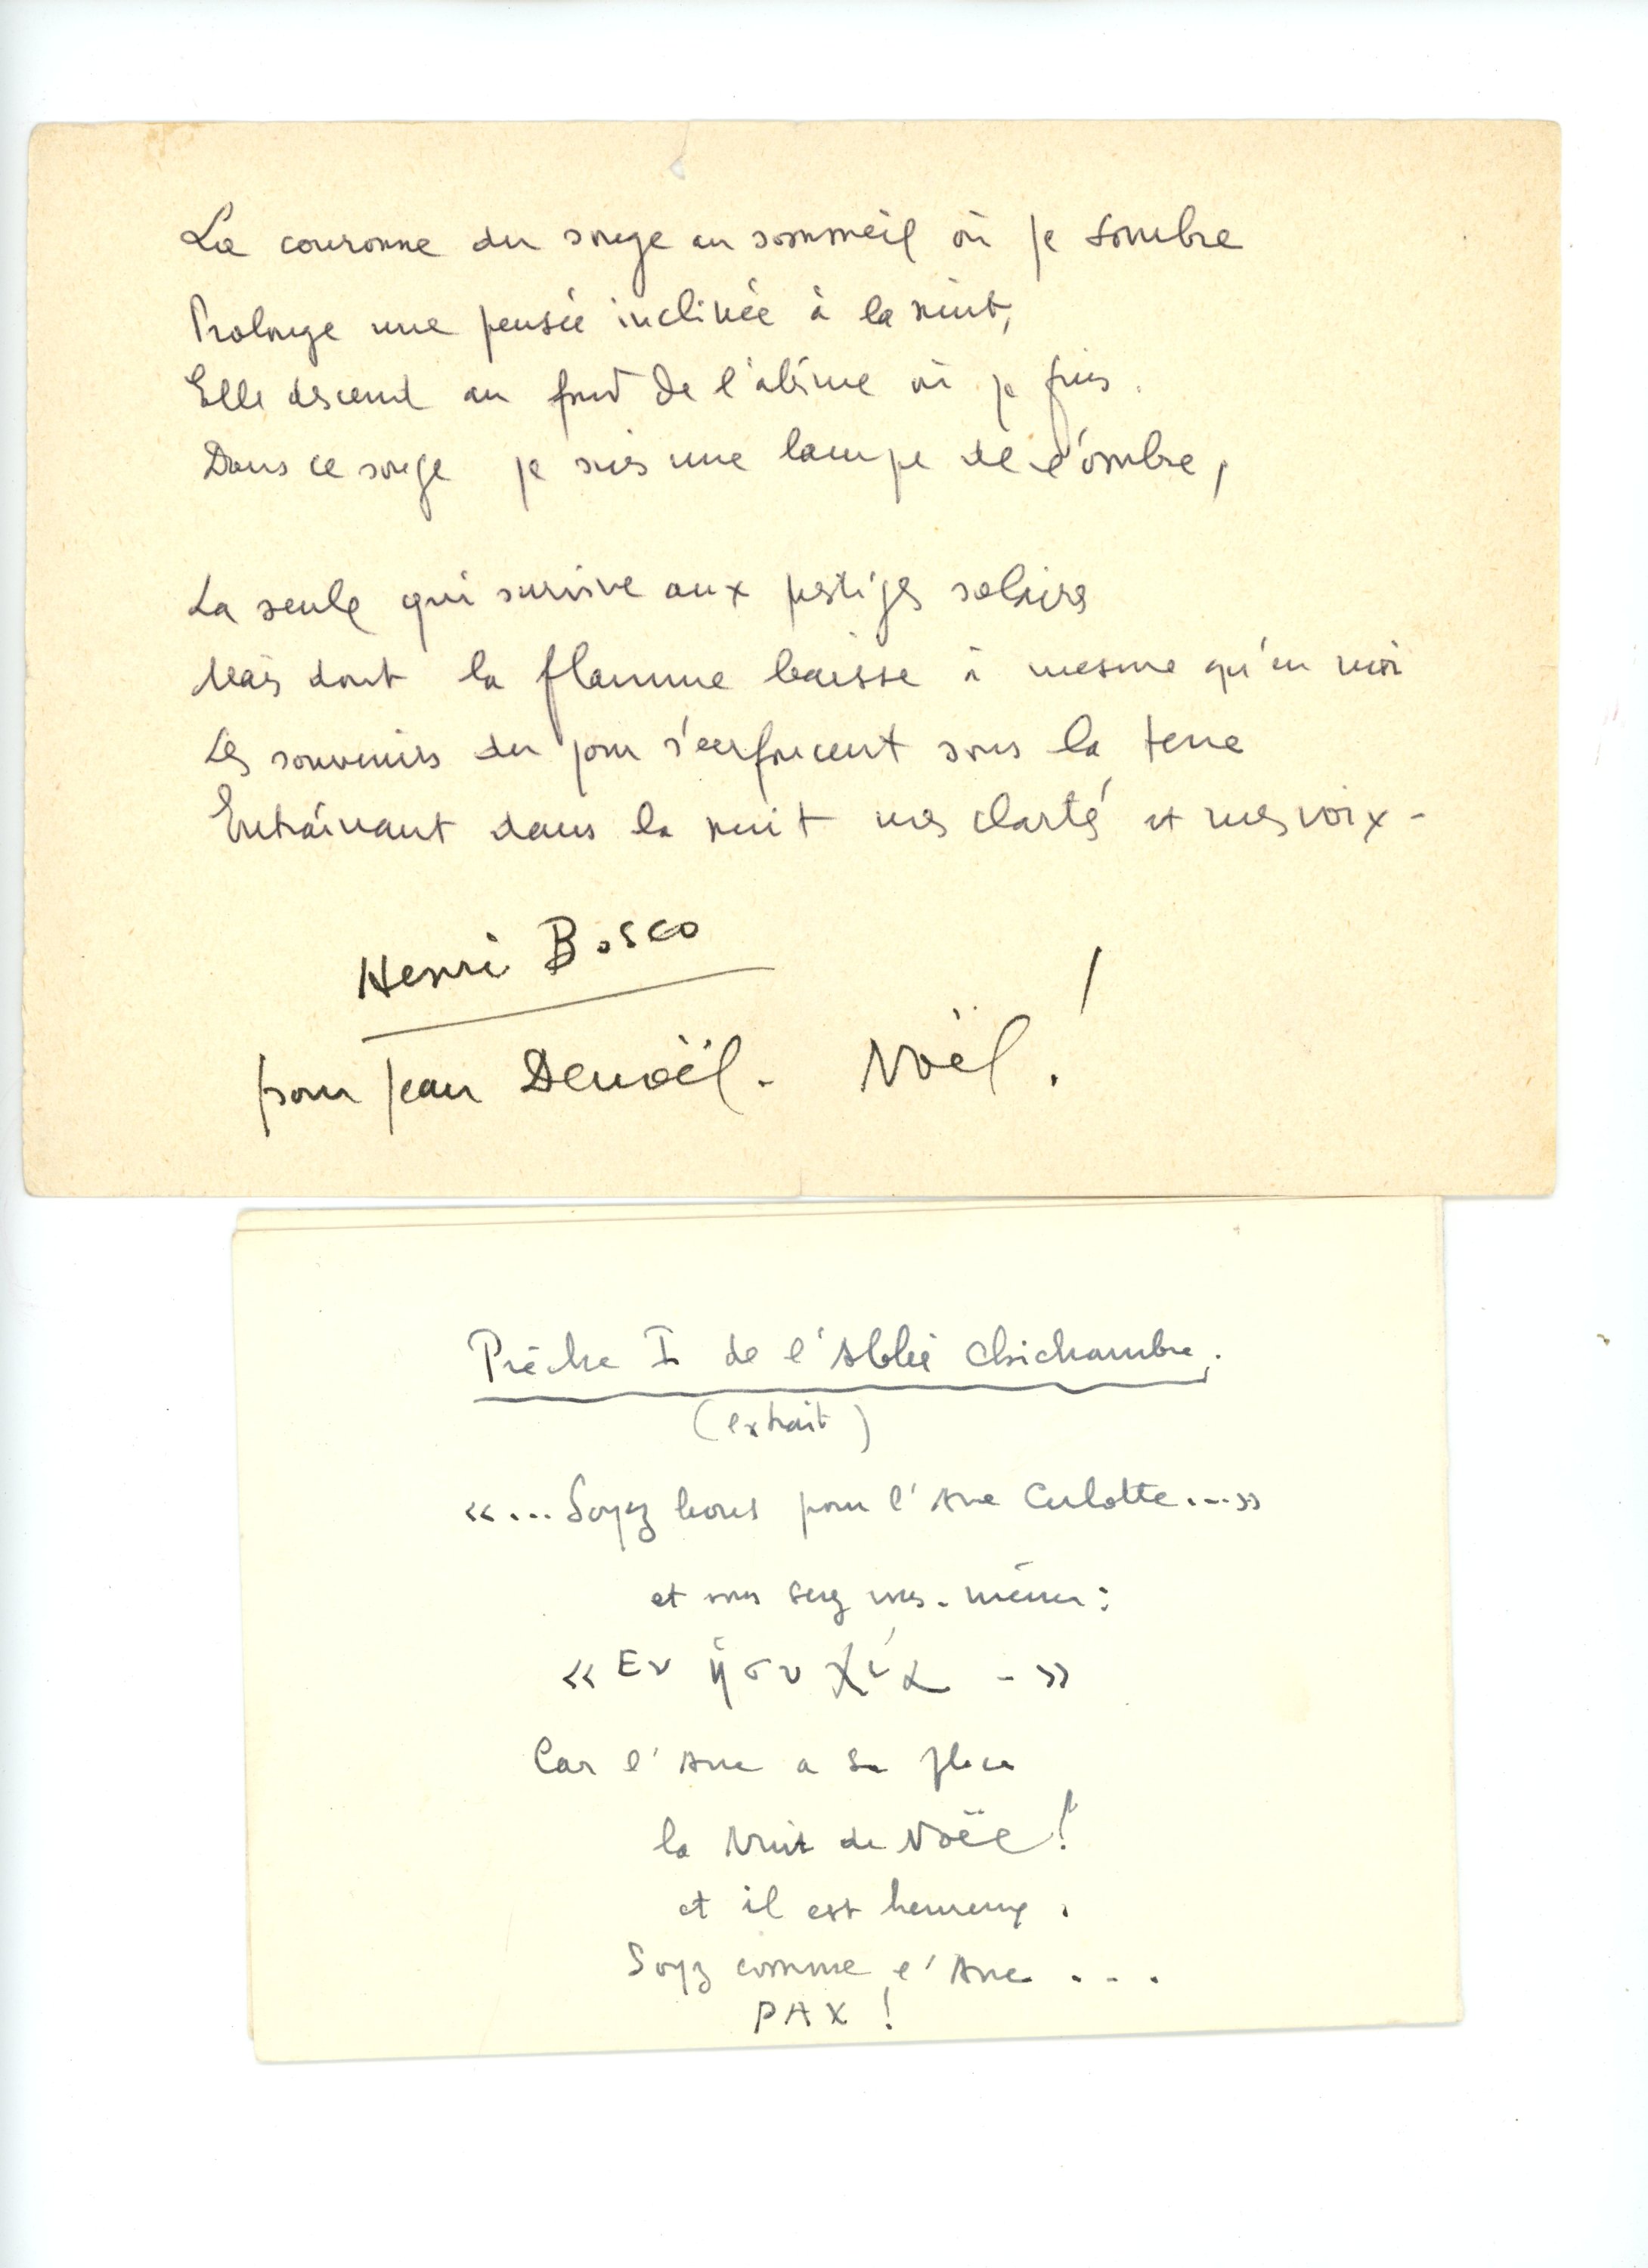 La couronne du songe au sommeil où je sombre
Prolonge une pensée inclinée à la nuit,
Elle descend au fond de l'abîme où je fuis.
Dans ce songe je suis une lampe de l'ombre,
La seule qui survive aux prestiges solaires
Mais dont la flamme baisse à mesme qu'en moi
Les souvenirs du jour s'enfoncent sous la terre
Entraînant dans la nuit mes clartés et mes voix -
Henri Bosco
pour Jean Denoël. Noël!
Prêche I de l'Abbé Chichambre.
(extrait)
«... Soyez bons pour l'Ane Culotte...»
et vous serez vous-mêmes:
«Εν ἡσυχίᾳ -»
Car l'Ane a sa place
la Nuit de Noël!
et il est heureux.
Soyez comme l'Ane ...
PAX !